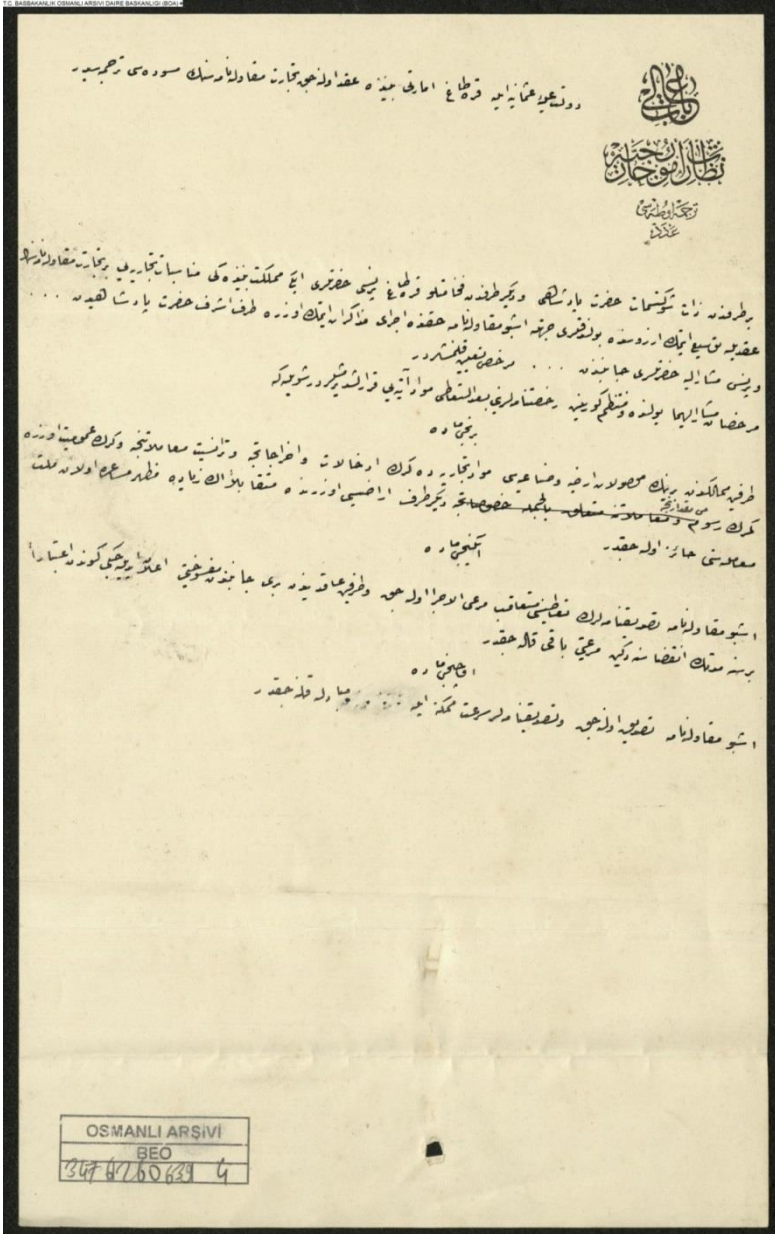 T.C. BAŞBAKANLIK OSMANLI ARŞİVİ DAİRE BAŞKANLIĞI (BOA)
باب عالی
نظارت امور خارجیه
ترجمه اوطه سی
عدد
دولت علیهٔ عثمانیه ایله قره طاغ امارتی بیننده عقد اولنه جق تجارت مقاوله نامه سنك مسوده سی ترجمه سیدر
بر طرفدن ذات شوکتسمات حضرت پادشاهی و دیکر طرفدن فخامتلو قره طاغ پرنسی حضرتلری ایکی مملکت بیننده کی مناسبات تجاریه یی بر تجارت مقاوله نامه سی
عقدیله توسیع ایتمك آرزوسنده بولندقلری جهتله اشبو مقاوله نامه حقنده اجرای مذاکرات ایتمك اوزره طرف اشرف حضرت پادشاهیدن . . .
و پرنس مشار الیه حضرتلری جانبندن . . . مرخص تعیین قلنمشلردر
مرخصان مشار الیهما یولنده و منتظم کوریلن رخصتنامه لرینی بعد التعاطی مواد آتیه یی قرارلشدیرمشلردر شویله که
برنجی ماده
طرفین ممالکندن برینك محصولات ارضیه و صناعیه سی مواد تجاریه ده کرك ادخالات و اخراجاتجه و ترانسیت معاملاتنجه و کرك عمومیت اوزره
کمرك رسوم و معاملاتنه متعلق بالجمله خصوصاتجه دیکر طرف اراضیسی اوزرنده متقابلاً اك زیاده مظهر مساعده اولان ملت
معامله سنی حائز اوله جقدر
ایکنجی ماده
اشبو مقاوله نامه تصدیقنامه لرك تعاطیسنی متعاقب مرعی الاجرا اوله جق و طرفین عاقدیندن بری جانبندن مفسوخیتی اعلان ایدیله جکی کوندن اعتباراً
بر سنه مدتك انقضاسنه دکین مرعیتی باقی قاله جقدر
اوچنجی ماده
اشبو مقاوله نامه تصدیق اولنه جق و تصدیقنامه لر سرعت ممکنه ایله مبادله قلنه جقدر
OSMANLI ARŞİVİ
BEO